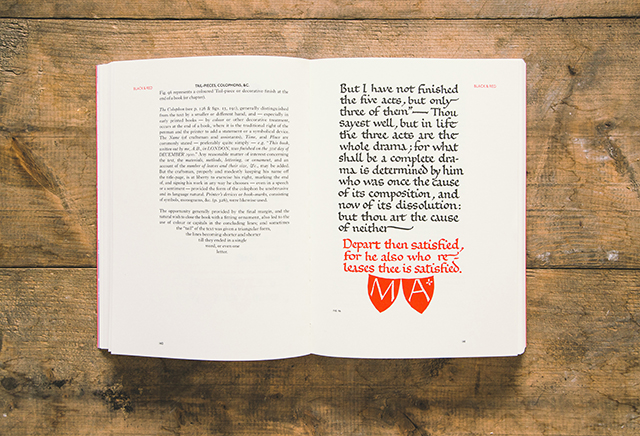 BLACK & RED
TAIL-PIECES, COLOPHONS, &C.
Fig 96 represents a coloured Tail-piece or decorative finish at the
end of a book (or chapter).
The Colophon (see p. 128 & figs. 95, 191), generally distinguished
from the text by a smaller or different hand, and — especially in
early printed books — by colour or other decorative treatment,
occurs at the end of a book, where it is the traditional right of the
penman and the printer to add a statement or a symbolical device.
The Name (of craftsman and assistants), Time, and Place are
commonly stated — preferably quite simply — e.g. "This book,
written out by me, A.B., in LONDON, was finished on the 31st day of
DECEMBER 1900." Any reasonable matter of interest concerning
the text, the materials, methods, lettering, or ornament, and an
account of the number of leaves and their size, &c., may be added.
But the craftsman, properly and modestly keeping his name off
the title-page, is at liberty to exercise his right, marking the end
of, and signing his work in any way he chooses — even in a speech
or a sentiment — provided the form of the colophon be unobtrusive
and its language natural. Printer's devices or book-marks, consisting
of symbols, monograms, &c. (p. 326), were likewise used.
The opportunity generally provided by the final margin, and the
natural wish to close the book with a fitting ornament, also led to the
use of colour or capitals in the concluding lines; and sometimes
the "tail" of the text was given a triangular form,
the lines becoming shorter and shorter
till they ended in a single
word, or even one
letter.
BLACK & RED
But I have not finished
the five acts, but only
three of them" — Thou
sayest well, but in life
the three acts are the
whole drama; for what
shall be a complete dra-
ma is determined by him
who was once the cause
of its composition, and
now of its dissolution:
but thou art the cause
of neither
Depart then satisfied,
for he also who re-
leases thee is satisfied.
M A